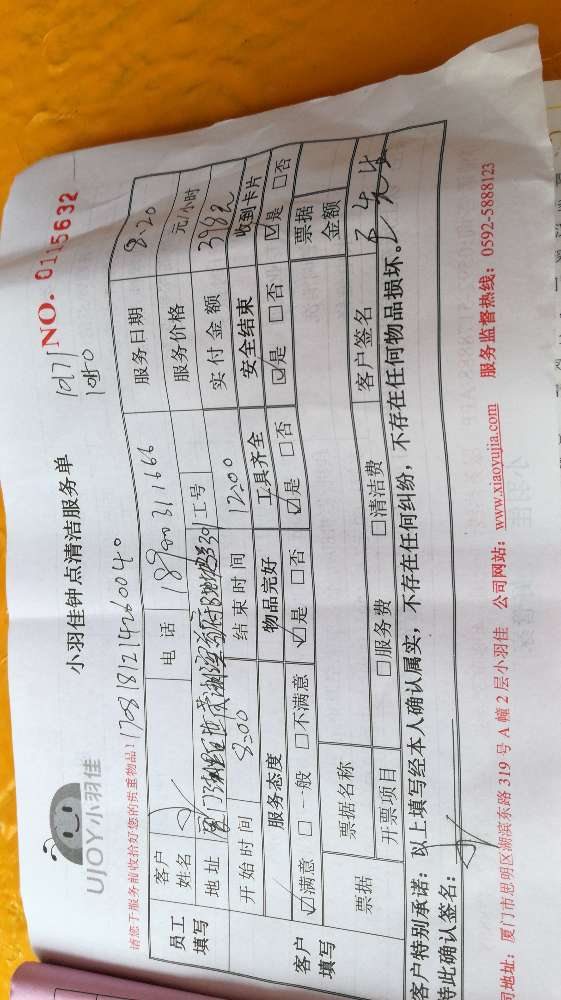 UJOY小羽佳
小羽佳钟点清洁服务单
NO. 0115632
请您于服务前收拾好您的贵重物品!
员工填写
客户姓名
电话
服务日期 8.20
地址
工号
服务价格 元/小时
客户填写
开始时间 8:00
结束时间 12:00
实付金额
服务态度
物品完好
工具齐全
安全结束
收到卡片
☑满意 □一般 □不满意
☑是 □否
☑是 □否
☑是 □否
☑是 □否
票据
票据名称
票据金额
开票项目
□服务费 □清洁费
客户签名
客户特别承诺:以上填写经本人确认属实,不存在任何纠纷,不存在任何物品损坏。
特此确认签名:
地址:厦门市思明区湖滨东路319号A幢2层小羽佳 公司网站:www.xiaoyujia.com 服务监督热线:0592-5888123